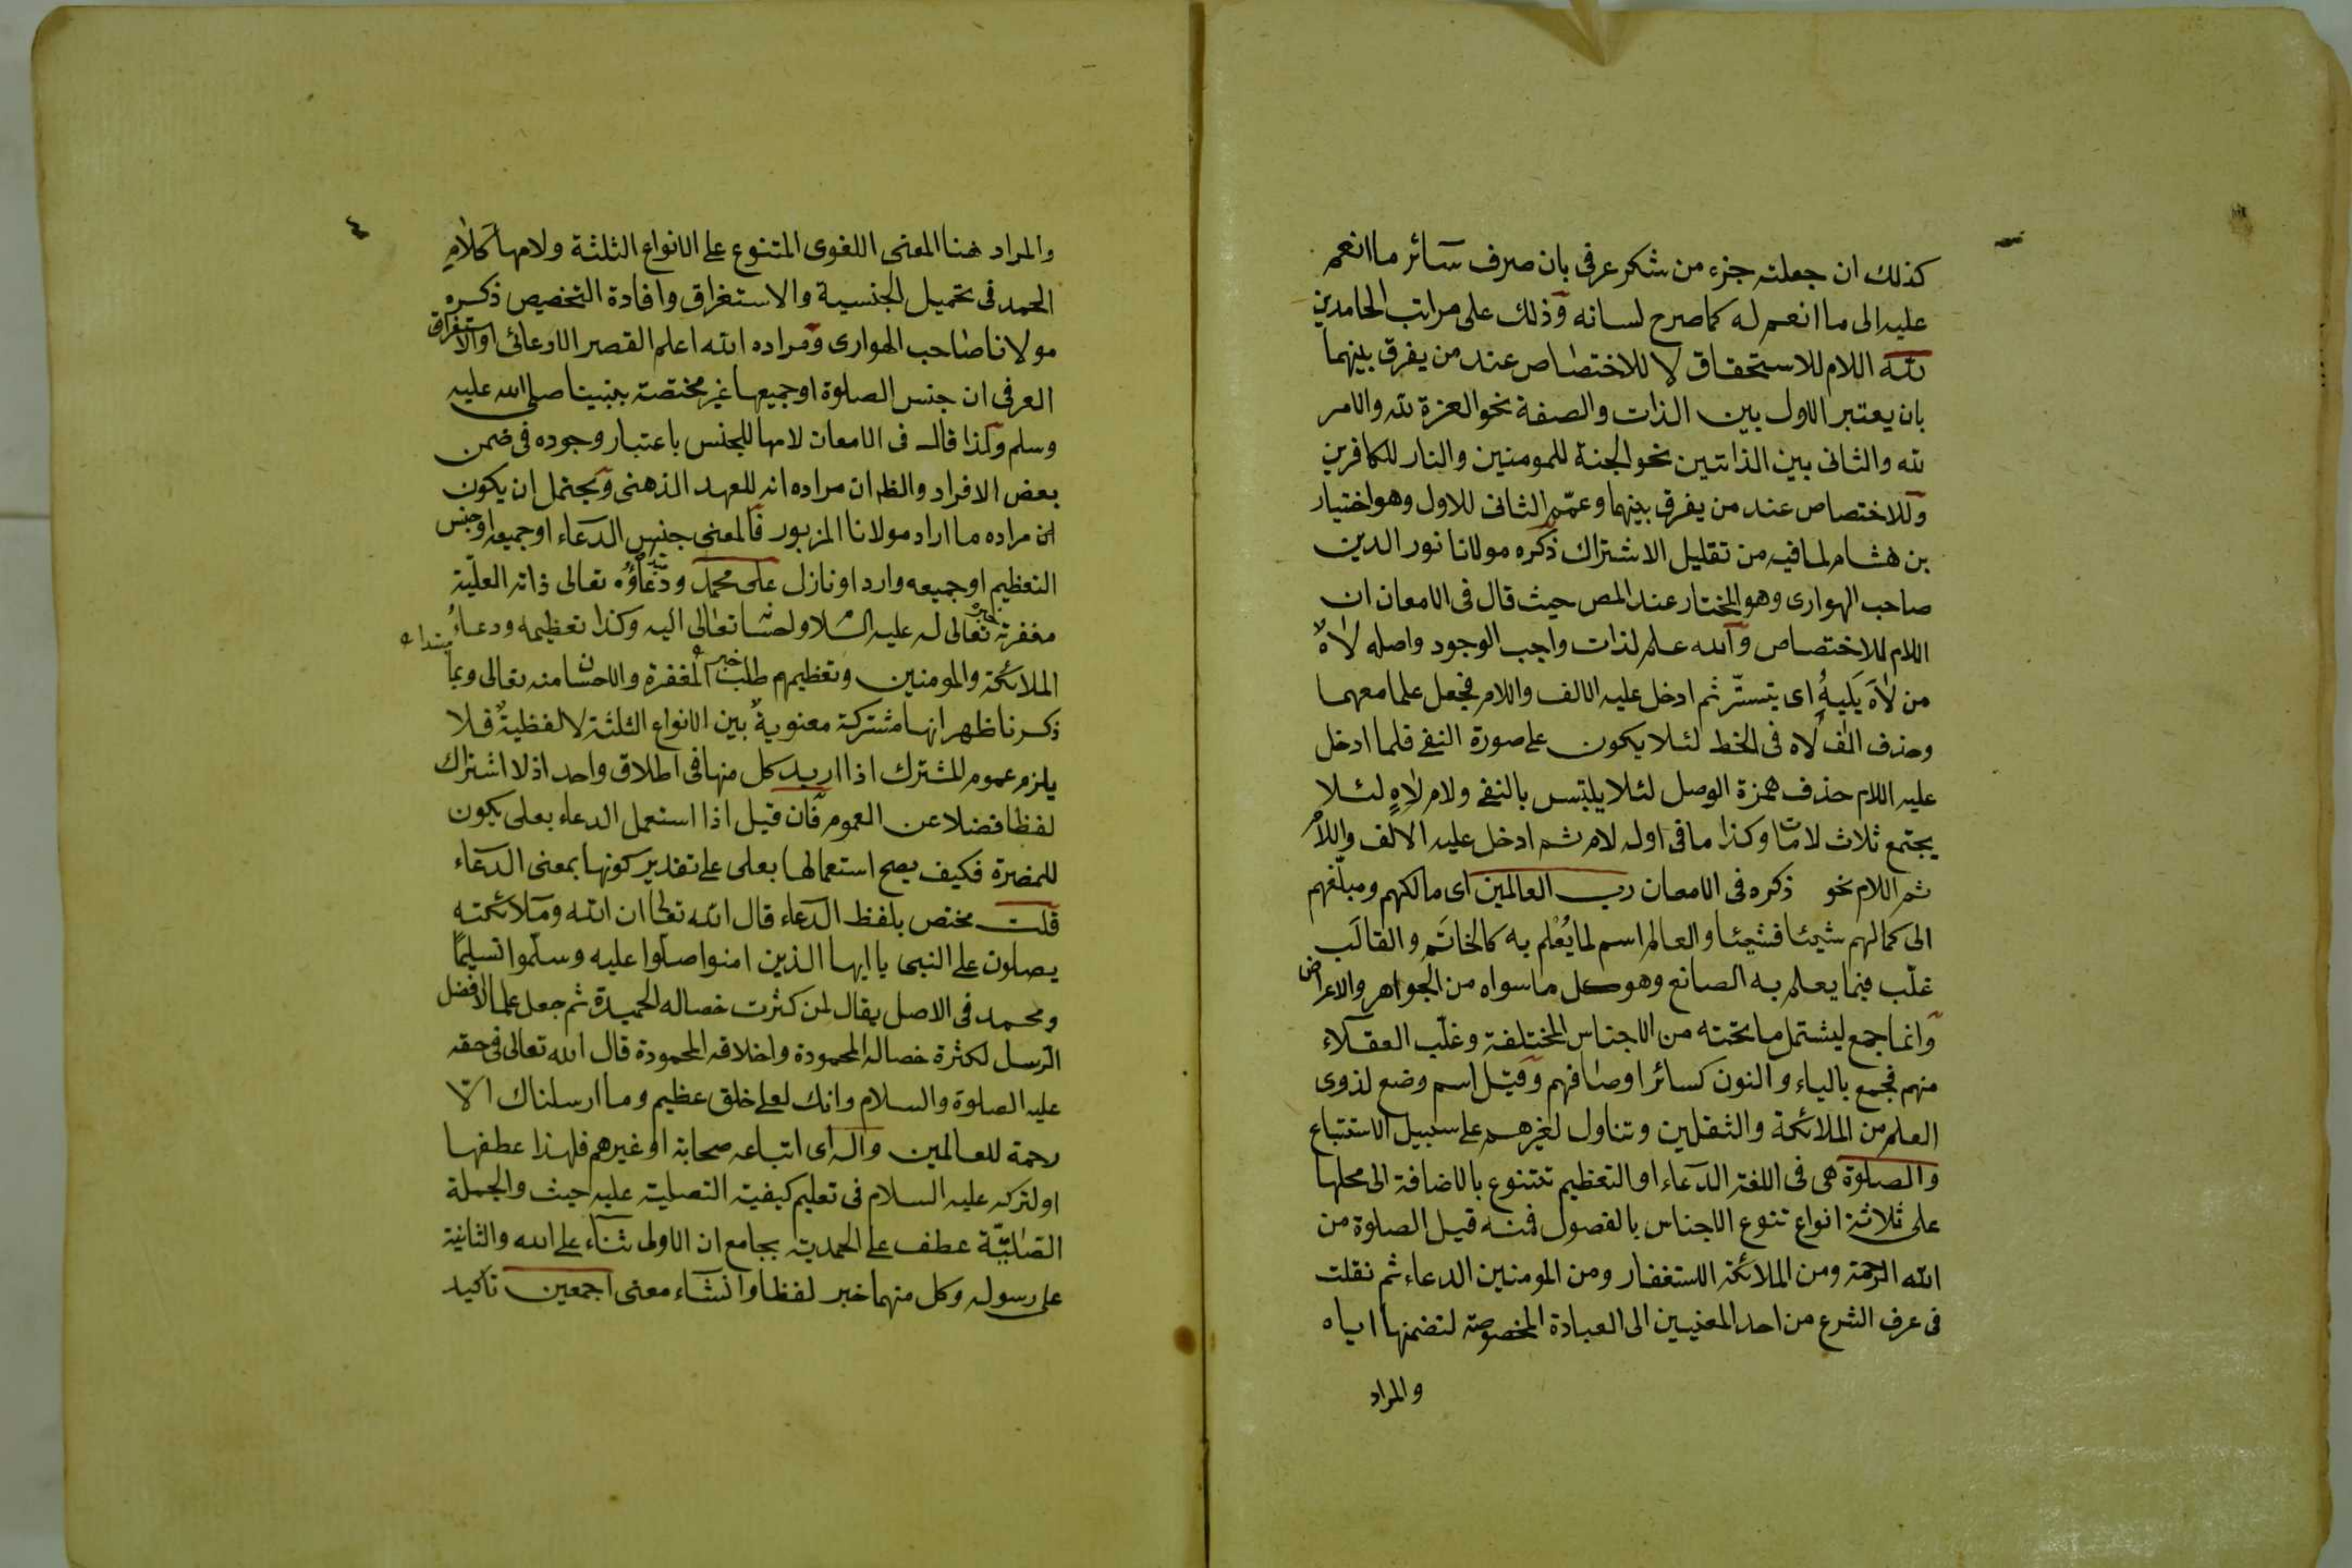 كذلك ان جعلته جزء من شكر عرفى بان صرف سآئر ما انعم
عليه الى ما انعم له كما صرح لسانه وذلك على مراتب الحامدين
لله اللام للاستحقاق لا للاختصاص عند من يفرق بينهما
بان يعتبر الاول بين الذات والصفة نحو العزة لله والامر
لله والثانى بين الذاتين نحو الجنة للمومنين والنار للكافرين
وللاختصاص عند من يفرق بينهما وعمّم الثانى للاول وهو اختيار
بن هشام لما فيه من تقليل الاشتراك ذكره مولانا نور الدين
صاحب الهوارى وهو المختار عند المص حيث قال فى الامعان ان
اللام للاختصاص والله علم لذات واجب الوجود واصله لاهٌ
من لاَهَ يَليهُ اى يتستّر ثم ادخل عليه الالف واللام فجعل علما معهما
وحذف الف لاه فى الخط لئلا يكون على صورة النفى فلما ادخل
عليه اللام حذف همزة الوصل لئلا يلتبس بالنفى ولام لاهٍ لئلا
يجتمع ثلاث لامات وكذا ما فى اوله لام ثم ادخل عليه الالف واللام
ثم اللام نحو ذكره فى الامعان رب العالمين اى مالكهم ومبلّغهم
الى كمالهم شيئا فشيئا والعالم اسم لما يُعْلم به كالخاتَم والقالَب
غلّب فيما يعلم به الصانع وهو كل ما سواه من الجواهر والاعراض
وانما جمع ليشتمل ما تحته من الاجناس المختلفة وغلّب العقلاء
منهم فجمع بالياء والنون كسائر اوصافهم وقيل اسم وضع لذوى
العلم من الملائكة والثقلين وتناول لغيرهم على سبيل الاستتباع
والصلوة هى فى اللغة الدعاء او التعظيم تتنوع بالاضافة الى محلها
على ثلاثة انواع تنوع الاجناس بالفصول فمنه قيل الصلوة من
الله الرحمة ومن الملائكة الاستغفار ومن المومنين الدعاء ثم نقلت
فى عرف الشرع من احد المعنيين الى العبادة المخصوصة لتضمنها اياه
والمراد
٤
والمراد هنا المعنى اللغوى المتنوع على الانواع الثلثة ولامها كلام
الحمد فى تحميل الجنسية والاستغراق وافادة التخصيص ذكره
مولانا صاحب الهوارى ومراده الله اعلم القصر الادعائى او الاستغراق
العرفى ان جنس الصلوة او جميعها غير مختصة بنبينا صلى الله عليه
وسلم وكذا قال فى الامعان لامها للجنس باعتبار وجوده فى ضمن
بعض الافراد والظ ان مراده انه للعهد الذهنى ويحتمل ان يكون
ان مراده ما اراد مولانا المزبور فالمعنى جنس الدعاء او جميعه او جنس
التعظيم او جميعه وارد او نازل على محمد ودعاؤه تعالى ذاته العليّة
مغفرته تعالى له عليه السلام واحسانه تعالى اليه وكذا تعظيمه ودعاءُ مبتداء
الملائكة والمومنين وتعظيمهم طلب خبره المغفرة والاحسان منه تعالى وبما
ذكرنا ظهر انها مشتركة معنوية بين الانواع الثلثة لا لفظيةٌ فلا
يلزم عموم المشترك اذا اريد كل منها فى اطلاق واحد اذ لا اشتراك
لفظا فضلا عن العموم فان قيل اذا استعمل الدعاء بعلى يكون
للمضرة فكيف يصح استعمالها بعلى على تقدير كونها بمعنى الدعاء
قلت مختص بلفظ الدعاء قال الله تعالى ان الله وملائكته
يصلون على النبى يا ايها الذين امنوا صلّوا عليه وسلّموا تسليمًا
ومحمد فى الاصل يقال لمن كثرت خصاله الحميدة ثم جعل علما لافضل
الرسل لكثرة خصاله المحمودة واخلاقه المحمودة قال الله تعالى فى حقه
عليه الصلوة والسلام وانك لعلى خلق عظيم وما ارسلناك الّا
رحمة للعالمين واله اى اتباعه صحابة او غيرهم فلهذا عطفها
او لتركه عليه السلام فى تعليم كيفية التصلية عليه حيث والجملة
الصّلبيّة عطف على الحمدية بجامع ان الاولى ثنآء على الله والثانية
على رسوله وكل منهما خبر لفظا وانشاء معنى اجمعين تاكيد